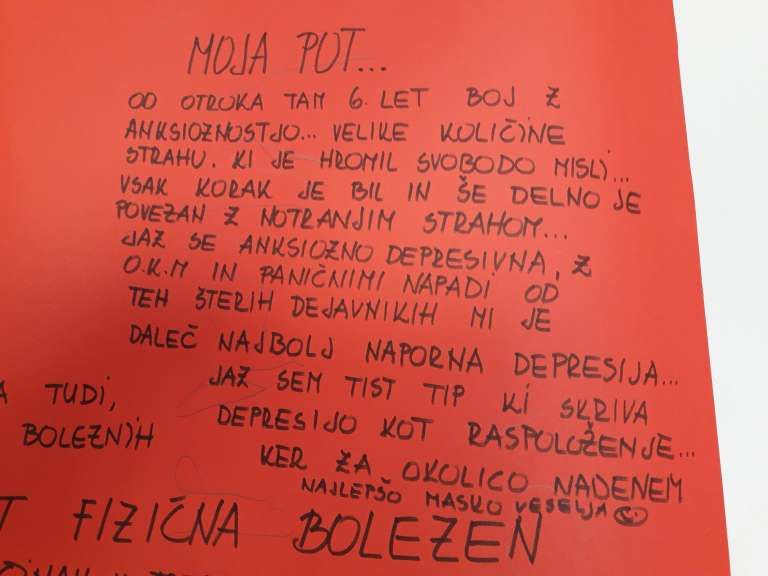 MOJA POT...
OD OTROKA TAM 6. LET BOJ Z
ANKSIOZNOSTJO... VELIKE KOLIČINE
STRAHU. KI JE HROMIL SVOBODO MISLI...
VSAK KORAK JE BIL IN ŠE DELNO JE
POVEZAN Z NOTRANJIM STRAHOM...
JAZ SE ANKSIOZNO DEPRESIVNA, Z
O.K.M IN PANIČNIMI NAPADI OD
TEH ŠTERIH DEJAVNIKIH MI JE
DALEČ NAJBOLJ NAPORNA DEPRESIJA...
JAZ SEM TIST TIP KI SKRIVA
DEPRESIJO KOT RASPOLOŽENJE...
KER ZA OKOLICO NADENEM
NAJLEPŠO MASKO VESELJA
A TUDI,
BOLEZNIH
T FIZIČNA BOLEZEN